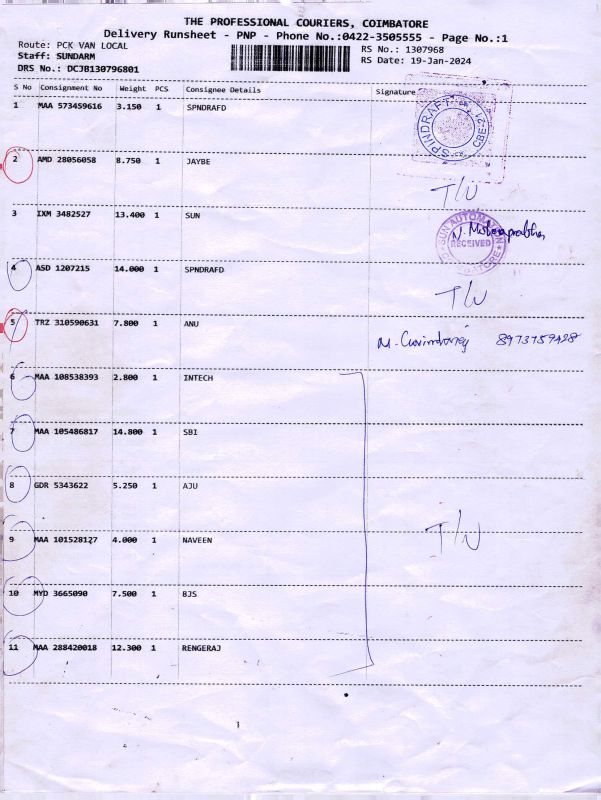 THE PROFESSIONAL COURIERS, COIMBATORE
Delivery Runsheet - PNP - Phone No.:0422-3505555 - Page No.:1
Route: PCK VAN LOCAL
RS No.: 1307968
Staff: SUNDARM
RS Date: 19-Jan-2024
DRS No.: DCJB130796801
S No Consignment No Weight PCS Consignee Details Signature
1 MAA 573459616 3.150 1 SPNDRAFD
SPINDRAFT CBE-21
2 AMD 28056058 8.750 1 JAYBE
T/U
3 IXM 3482527 13.400 1 SUN
SUN AUTOMATION
RECEIVED
4 ASD 1207215 14.000 1 SPNDRAFD
T/U
5 TRZ 310590631 7.800 1 ANU
8973759428
6 MAA 108538393 2.800 1 INTECH
7 MAA 105486817 14.800 1 SBI
8 GDR 5343622 5.250 1 AJU
9 MAA 101528127 4.000 1 NAVEEN
T/U
10 MYD 3665090 7.500 1 BJS
11 MAA 288420018 12.300 1 RENGERAJ